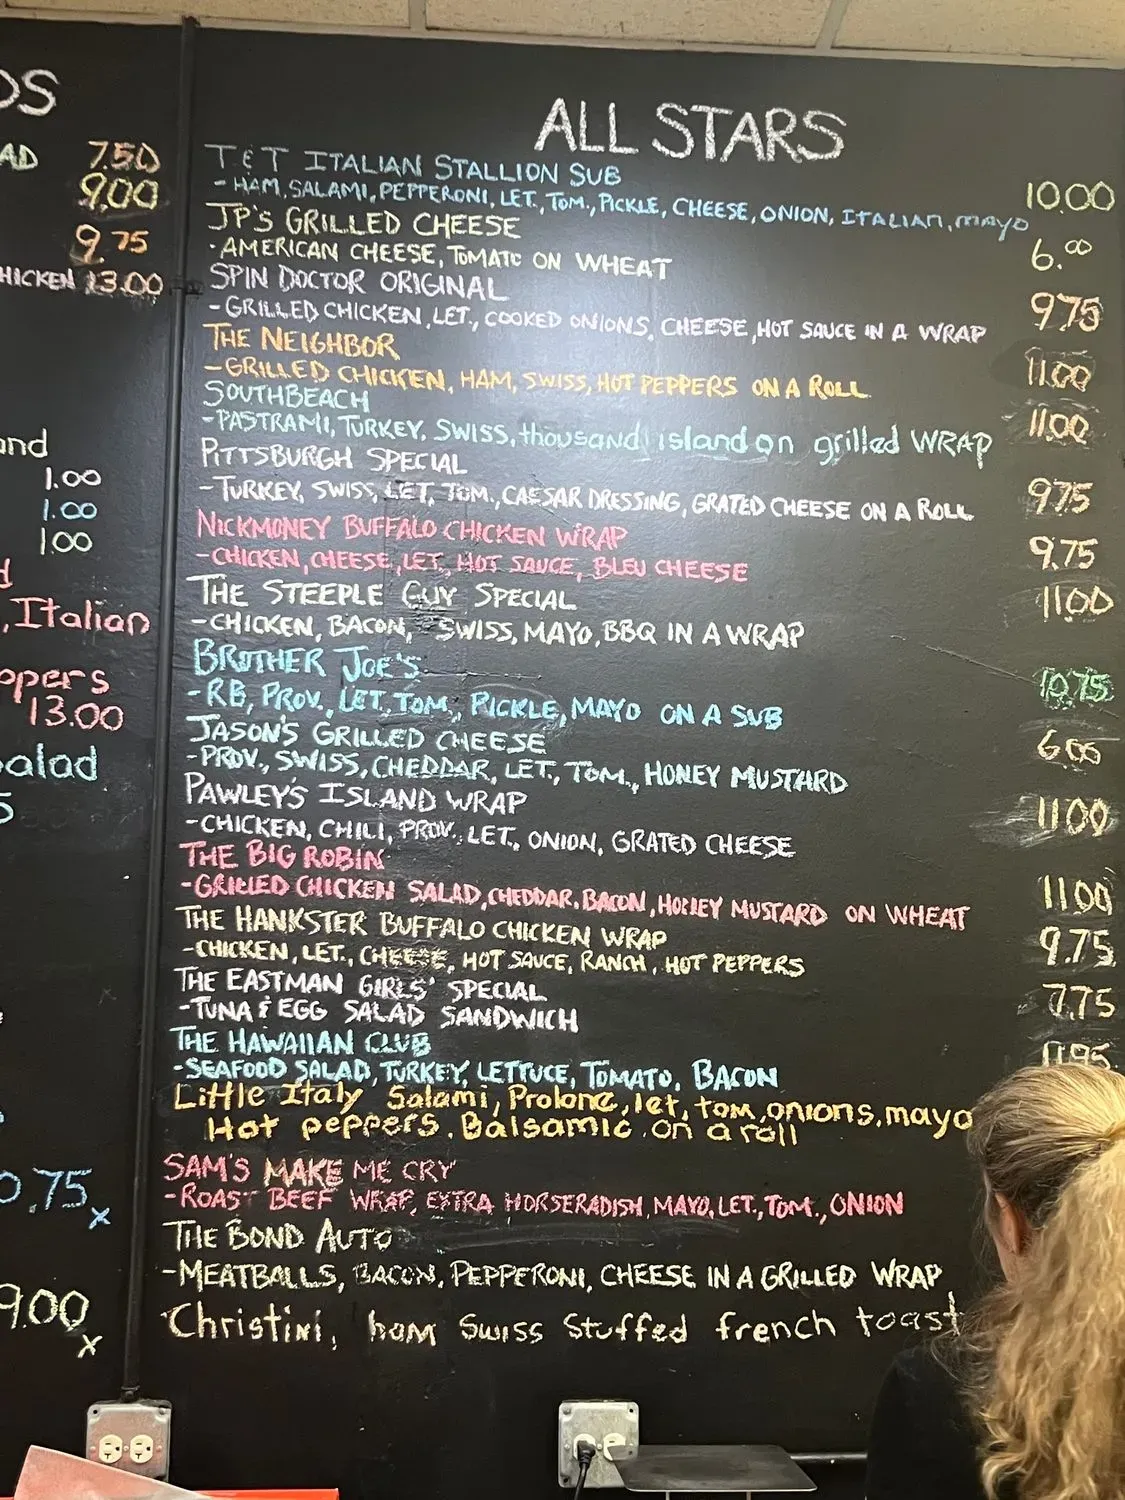 DS
ALL STARS
AD 7.50
9.00
9.75
HICKEN 13.00
and
1.00
1.00
1.00
d
, Italian
ppers
13.00
alad
5
0.75 x
9.00 x
T & T ITALIAN STALLION SUB
- HAM, SALAMI, PEPPERONI, LET, TOM., PICKLE, CHEESE, ONION, ITALIAN, mayo 10.00
JP'S GRILLED CHEESE
- AMERICAN CHEESE, TOMATO ON WHEAT 6.00
SPIN DOCTOR ORIGINAL
- GRILLED CHICKEN, LET., COOKED ONIONS, CHEESE, HOT SAUCE IN A WRAP 9.75
THE NEIGHBOR
- GRILLED CHICKEN, HAM, SWISS, HOT PEPPERS ON A ROLL 11.00
SOUTHBEACH
- PASTRAMI, TURKEY, SWISS, thousand island on grilled WRAP 11.00
PITTSBURGH SPECIAL
- TURKEY, SWISS, LET, TOM., CAESAR DRESSING, GRATED CHEESE ON A ROLL 9.75
NICKMONEY BUFFALO CHICKEN WRAP
- CHICKEN, CHEESE, LET., HOT SAUCE, BLEU CHEESE 9.75
THE STEEPLE GUY SPECIAL
- CHICKEN, BACON, SWISS, MAYO, BBQ IN A WRAP 11.00
BROTHER JOE'S
- RB, PROV., LET, TOM., PICKLE, MAYO ON A SUB 10.75
JASON'S GRILLED CHEESE
- PROV., SWISS, CHEDDAR, LET., TOM., HONEY MUSTARD 6.00
PAWLEY'S ISLAND WRAP
- CHICKEN, CHILI, PROV., LET., ONION, GRATED CHEESE 11.00
THE BIG ROBIN
- GRILLED CHICKEN SALAD, CHEDDAR, BACON, HONEY MUSTARD ON WHEAT 11.00
THE HANKSTER BUFFALO CHICKEN WRAP
- CHICKEN, LET., CHEESE, HOT SAUCE, RANCH, HOT PEPPERS 9.75
THE EASTMAN GIRLS' SPECIAL
- TUNA & EGG SALAD SANDWICH 7.75
THE HAWAIIAN CLUB
- SEAFOOD SALAD, TURKEY, LETTUCE, TOMATO, BACON 11.95
Little Italy Salami, Prolone, let, tom, onions, mayo
Hot peppers, Balsamic on a roll
SAM'S MAKE ME CRY
- ROAST BEEF WRAP, EXTRA HORSERADISH, MAYO, LET., TOM., ONION
THE BOND AUTO
- MEATBALLS, BACON, PEPPERONI, CHEESE IN A GRILLED WRAP
Christini, ham Swiss Stuffed french toast